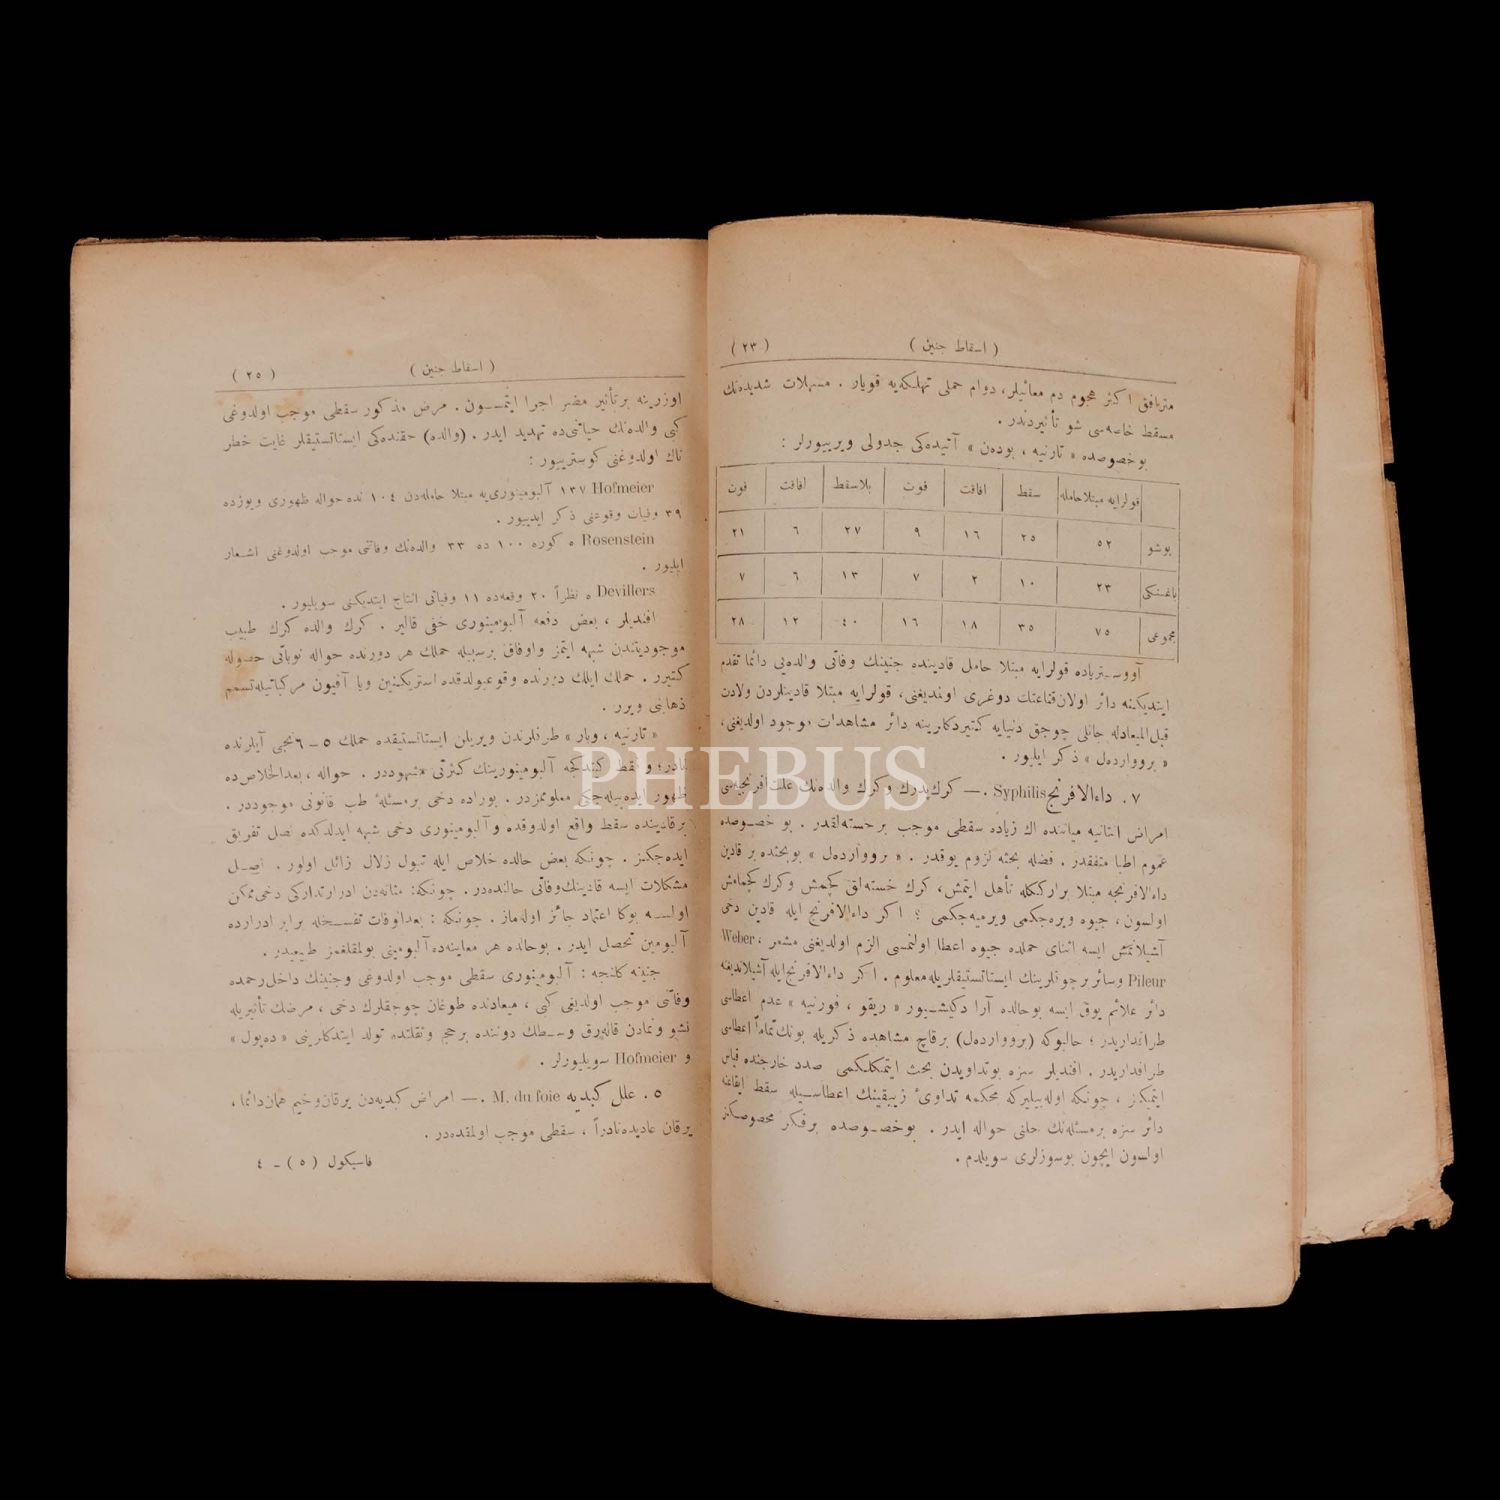 ( اسقاط جنین )
( ٢٣ )
مترافق اکثر هجوم دم معائیلر، دوام حملی تهلکه‌یه قویار . مسهلات شدیده‌نك
مسقط خاصه‌سی شو تأثیردندر .
بوخصوصده « تارنیه ، بوده‌ن » آتیده‌کی جدولی ویرییورلر :
قولرایه مبتلا حامله سقط افاقت فوت بلاسقط افاقت فوت
بوشو ٥٢ ٢٥ ١٦ ٩ ٢٧ ٦ ٢١
٢٣ ١٠ ٢ ٧ ١٣ ٦ ٧
مجموعی ٧٥ ٣٥ ١٨ ١٦ ٤٠ ١٢ ٢٨
آووستریاده قولرایه مبتلا حامل قادینده جنینك وفاتی والده‌یی دائما تقدم
ایتدیکنه دائر اولان قناعتك دوغری اولمدیغنی، قولرایه مبتلا قادینلردن ولادت
قبل‌المیعادله جانلی چوجق دنیایه کتیردکلرینه دائر مشاهدات موجود اولدیغنی،
« برووارده‌ل » ذکر ایلیور .
٧ . داءالافرنج Syphilis .— کرك پدرك وکرك والده‌نك علت افرنجیه‌سی
امراض انتانیه میاننده اك زیاده سقطی موجب برخسته‌لقدر . بو خصوصده
عموم اطبا متفقدر . فضله بحثه لزوم یوقدر . « برووارده‌ل » بوبحثده بر قادین
داءالافرنجه مبتلا برارککله تأهل ایتمش، کرك خسته‌لق کچمش وکرك کچمامش
اولسون ، جیوه ویره‌جکمی ویرمیه‌جکمی ؟ اکر داءالافرنج ایله قادین دخی
آشیلانمش ایسه اثنای حملده جیوه اعطا اولنمسی الزم اولدیغنی مشعر ، Weber
Pileur وسائر برچوقلرینك ایستاتستیقلریله معلوم . اکر داءالافرنج ایله آشیلاندیغنه
دائر علائم یوق ایسه بوحالده آرا دکیشییور « ریقو ، فورنیه » عدم اعطاسی
طرافداریدر ؛ حالبوکه (برووارده‌ل) برقاچ مشاهده ذکریله بونك تماماً اعطاسی
طرافداریدر . افندیلر سزه بوتداویدن بحث ایتمکلکمی صدد خارجنده قیاس
ایتمکز ، چونکه اوله‌بیلیرکه محکمه تداوئ زیبقینك اعطاسیله سقط ایقاعنه
دائر سزه برمسئله‌نك حلنی حواله ایدر . بوخصوصده برفکر مخصوصکز
اولسون ایچون بوسوزلری سویلدم .
( اسقاط جنین )
( ٢٥ )
اوزرینه برتأثیر مضر اجرا ایتمسون . مرض مذکور سقطی موجب اولدوغی
کبی والده‌نك حیاتنی‌ده تهدید ایدر . (والده) حقنده‌کی ایستاتستیقلر غایت خطر
ناك اولدوغنی کوسترییور :
Hofmeier ١٣٧ آلبومینوری‌یه مبتلا حامله‌دن ١٠٤ نده حواله ظهوری ویوزده
٣٩ وفیات وقوعنی ذکر ایدییور .
Rosenstein ه کوره ١٠٠ ده ٣٣ والده‌نك وفاتنی موجب اولدوغنی اشعار
ایلیور .
Devillers ه نظراً ٢٠ وقعه‌ده ١١ وفیاتی انتاج ایتدیکنی سویلیور .
افندیلر ، بعض دفعه آلبومینوری خفی قالیر . کرك والده کرك طبیب
موجودیتندن شبهه ایتمز واوفاق برسببله حملك هر دورنده حواله نوباتی حصوله
کتیرر . حملك ایلك دورنده وقوعبولدقده استریکنین ویا آفیون مرکباتیله تسمم
ذهابنی ویرر .
« تارنیه ، وبار » طرفلرندن ویریلن ایستاتستیقده حملك ٥ – ٦ نجی آیلرنده
نادر؛ وفقط کتدکجه آلبومینورینك کثرتی مشهوددر . حواله ، بعدالخلاص‌ده
ظهور ایده‌بیله‌جکی معلومکزدر . بوراده دخی برمسئلۀ طب قانونی موجوددر .
برقادینده سقط واقع اولدوقده وآلبومینوری دخی شبهه ایدلدکده نصل تفریق
ایده‌جکز . چونکه بعض حالده خلاص ایله تبول زلال زائل اولور . اصل
مشکلات ایسه قادینك وفاتی حالنده‌در . چونکه: مثانه‌دن ادرار تدارکی دخی ممکن
اولسه بوکا اعتماد جائز اوله‌ماز . چونکه : بعداوفات تفسخله برابر ادرارده
آلبومین تحصل ایدر . بوحالده هر معاینه‌ده آلبومینی بولمقلغمز طبیعیدر .
جنینه کلنجه : آلبومینوری سقطی موجب اولدوغی وجنینك داخل رحمده
وفاتنی موجب اولدیغی کبی ، میعادنده طوغان چوجقلرك دخی ، مرضك تأثیریله
نشو ونمادن قاله‌رق وسطك دوننده برحجم وثقلتده تولد ایتدکلرینی « ده‌پول »
و Hofmeier سویلیورلر .
٥ . علل کبدیه M. du foie .— امراض کبدیه‌دن یرقان وخیم همان دائما ،
یرقان عادیده نادراً ، سقطی موجب اولمقده‌در .
فاسیکول ( ٥ ) – ٤
PHEBUS